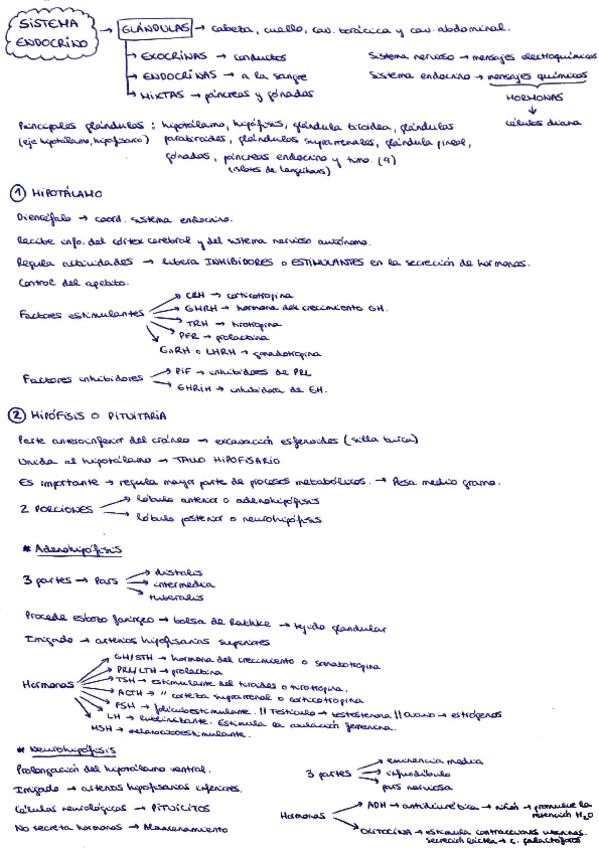 SISTEMA ENDOCRINO → GLÁNDULAS → cabeza, cuello, cav. torácica y cav. abdominal.
→ EXOCRINAS → conductos
→ ENDOCRINAS → a la sangre
→ MIXTAS → páncreas y gónadas
Sistema nervioso → mensajes electroquímicos
Sistema endocrino → mensajes químicos
HORMONAS
↓
células diana
Principales glándulas : hipotálamo, hipófisis, glándula tiroidea, glándulas
(eje hipotálamo, hipofisario) paratiroides, glándulas suprarrenales, glándula pineal,
gónadas, páncreas endocrino y timo. (9)
(islotes de Langerhans)
① HIPOTÁLAMO
Diencéfalo → coord. sistema endocrino.
Recibe info. del córtex cerebral y del sistema nervioso autónomo.
Regula actividades → libera INHIBIDORES o ESTIMULANTES en la secreción de hormonas.
Control del apetito.
Factores estimulantes
→ CRH → corticotropina
→ GHRH → hormona del crecimiento GH.
→ TRH → tirotropina
→ PFR → prolactina
→ GnRH o LHRH → gonadotropina
Factores inhibidores
→ PIF → inhibidores de PRL
→ GHRIH → inhibidora de GH.
② HIPÓFISIS O PITUITARIA
Parte anteroinferior del cráneo → excavación esfenoides (silla turca)
Unida al hipotálamo → TALLO HIPOFISARIO
Es importante → regula mayor parte de procesos metabólicos. → Pesa medio gramo.
2 PORCIONES
→ lóbulo anterior o adenohipófisis
→ lóbulo posterior o neurohipófisis
* Adenohipófisis
3 partes → Pars
→ distalis
→ intermedia
→ tuberalis
Procede esbozo faríngeo → bolsa de Rathke → tejido glandular
Irrigado → arterias hipofisarias superiores
Hormonas
→ GH/STH → hormona del crecimiento o somatotropina
→ PRL/LTH → prolactina
→ TSH → estimulante del tiroides o tirotropina.
→ ACTH → " corteza suprarrenal o corticotropina
→ FSH → foliculoestimulante. // Testículo → testosterona // ovario → estrógenos
→ LH → luteinizante. Estimula la ovulación femenina.
MSH → melanocitoestimulante.
* Neurohipófisis
Prolongación del hipotálamo ventral.
Irrigado → arterias hipofisarias inferiores.
Células neurológicas → PITUICITOS
No secreta hormonas → Almacenamiento
3 partes
→ eminencia media
→ infundíbulo
→ pars nerviosa
Hormonas
→ ADH → antidiurética → riñón → promueve la retención H₂O
→ OXITOCINA → estimula contracciones uterinas.
secreción láctea → c. galactóforos